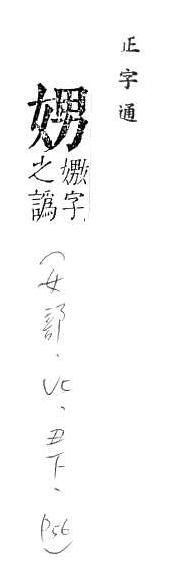 正字通
娚嫐字之譌
(女部、VC、丑下、P56)